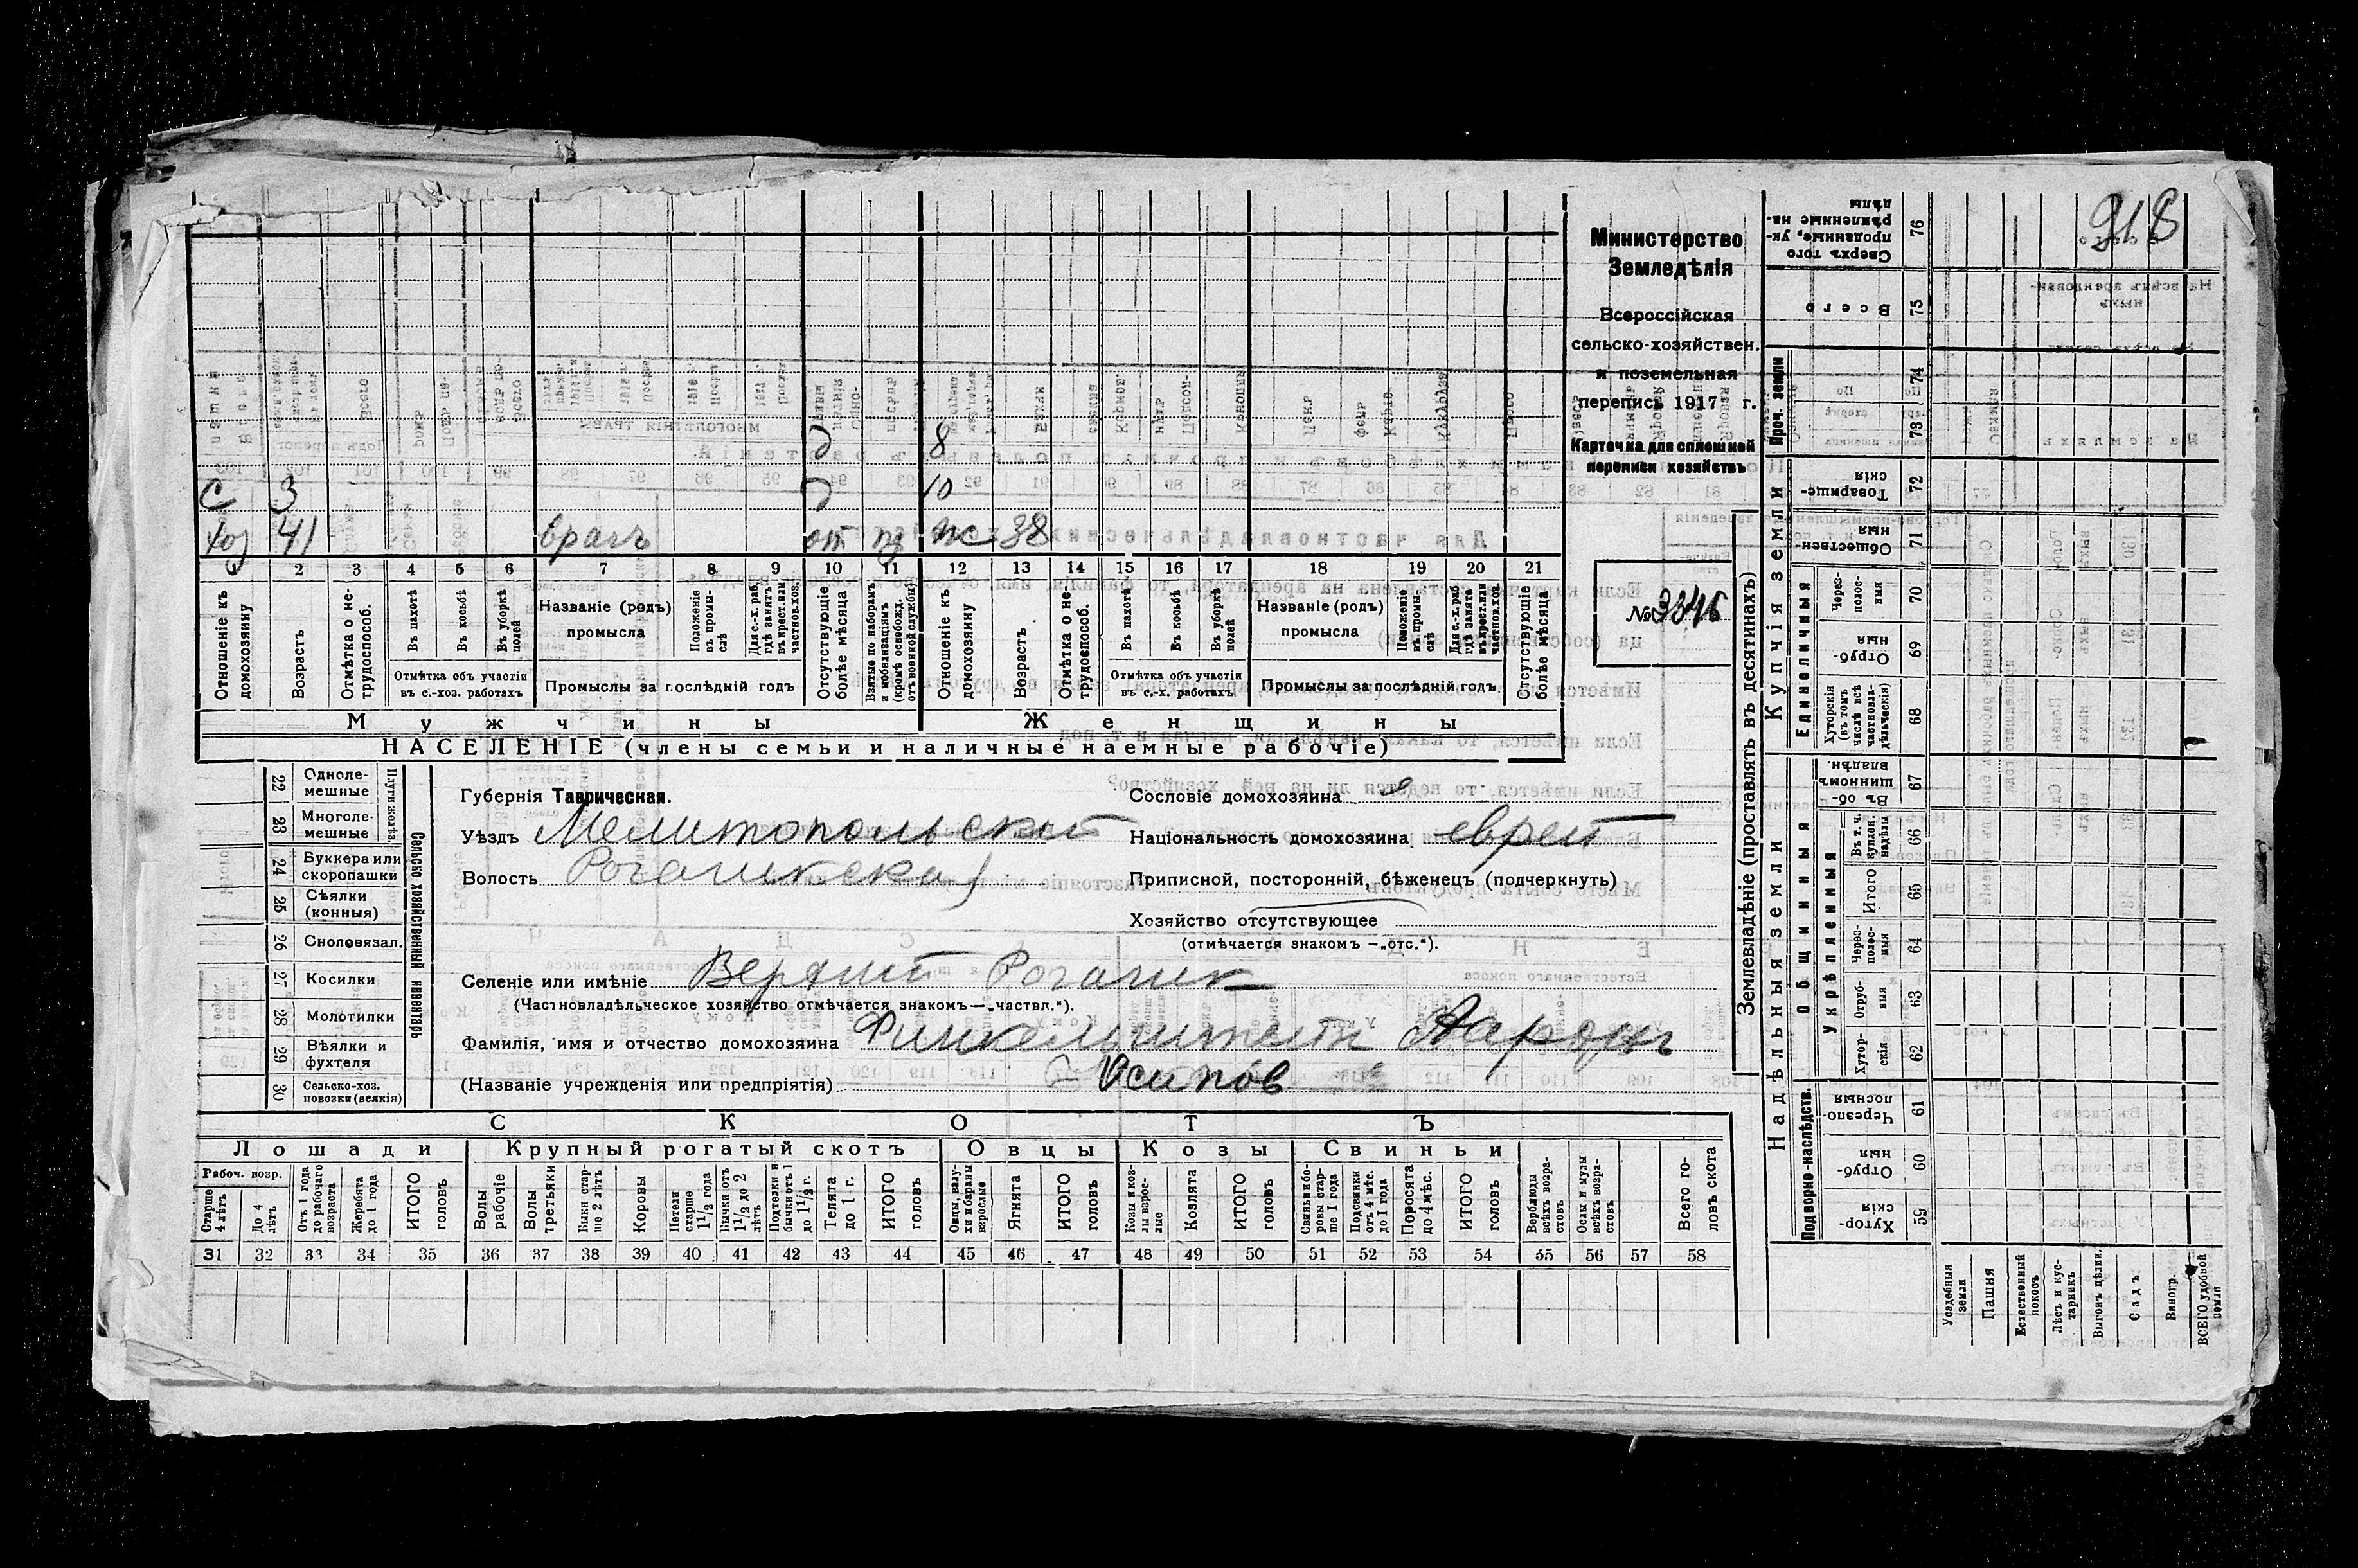 918
Министерство
Земледѣлія
Всероссійская
сельско-хозяйствен.
и поземельная
перепись 1917 г.
Карточка для сплошной
переписи хозяйствъ
№ 3346
д 8
с 3 д 10
хоз 41 врачъ от нз жс 38
1 2 3 4 5 6 7 8 9 10 11 12 13 14 15 16 17 18 19 20 21
Отношеніе къ домохозяину
Возрастъ
Отмѣтка о не-трудоспособ.
Въ пахотѣ
Въ косьбѣ
Въ уборкѣ полей
Отмѣтка объ участіи
въ с.-хоз. работахъ
Названіе (родъ)
промысла
Положеніе въ промы-слѣ
Для с.-х. раб. гдѣ занятъ въ крест. или частнов. хоз.
Промыслы за послѣдній годъ
Отсутствующіе болѣе мѣсяца
Взятые по наборамъ и мобилизаціямъ (кромѣ освобожд. отъ военной службы)
Отношеніе къ домохозяину
Возрастъ
Отмѣтка о не-трудоспособ.
Въ пахотѣ
Въ косьбѣ
Въ уборкѣ полей
Отмѣтка объ участіи
въ с.-х. работахъ
Названіе (родъ)
промысла
Положеніе въ промы-слѣ
Для с.-х. раб. гдѣ занята въ крест. или частнов. хоз.
Промыслы за послѣдній годъ
Отсутствующіе болѣе мѣсяца
Мужчины Женщины
НАСЕЛЕНІЕ (члены семьи и наличные наемные рабочіе)
22 Одноле-мешные
23 Многоле-мешные
Плуги желѣз.
24 Буккера или скоропашки
25 Сѣялки (конныя)
26 Сноповязал.
27 Косилки
28 Молотилки
29 Вѣялки и фухтеля
30 Сельско-хоз. повозки (всякія)
Сельско хозяйственный инвентарь
Губернія Таврическая.
Уѣздъ Мелитопольский
Волость Рогачикская
Сословіе домохозяина
Національность домохозяина еврей
Приписной, посторонній, бѣженецъ (подчеркнуть)
Хозяйство отсутствующее
(отмѣчается знакомъ —„отс.“).
Селеніе или имѣніе Верхний Рогачик
(Частновладѣльческое хозяйство отмѣчается знакомъ—„частвл.“).
Фамилія, имя и отчество домохозяина Финкельштейн Ааронъ
(Названіе учрежденія или предпріятія) Осипов
СКОТЪ
Лошади Крупный рогатый скотъ Овцы Козы Свиньи
Рабоч. возр.
Старше 4 лѣтъ
До 4 лѣтъ
Отъ 1 года до рабочаго возраста
Жеребята до 1 года
ИТОГО головъ
Волы рабочіе
Волы третьяки
Быки стар-ше 2 лѣтъ
Коровы
Нетели старше 1 1/2 года
Бычки отъ 1 1/2 до 2 лѣтъ
Подтелки и бычки отъ 1 до 1 1/2 г.
Телята до 1 г.
ИТОГО головъ
Овцы, валу-хи и бараны взрослые
Ягнята
ИТОГО головъ
Козы и коз-лы взрос-лые
Козлята
ИТОГО головъ
Свиньи и бо-ровы стар-ше 1 года
Подсвинки отъ 4 мѣс. до 1 года
Поросята до 4 мѣс.
ИТОГО головъ
Верблюды всѣхъ возра-стовъ
Ослы и мулы всѣхъ возра-стовъ
Всего го-ловъ скота
31 32 33 34 35 36 37 38 39 40 41 42 43 44 45 46 47 48 49 50 51 52 53 54 55 56 57 58
Землевладѣніе (проставлять въ десятинахъ)
Купчія земли
Надѣльныя земли
Сверхъ того проданные, ук-рѣпленные на-дѣлы 76
Всего 75
Проч. земли
74
73
Товарище-скія 72
Обществен-ныя 71
Единоличныя
Через-полос-ныя 70
Отруб-ныя 69
Хуторскія (въ томъ числѣ всѣ частновла-дѣльческія) 68
Общинныя
Въ об-щинномъ владѣн. 67
Укрѣпленныя
Въ т. ч. куплен. надѣлы 66
Итого 65
Через-полос-ныя 64
Отруб-ныя 63
Хутор-скія 62
Подворно-наслѣдств.
Черезпо-лосныя 61
Отруб-ныя 60
Хутор-скія 59
Усадебныя земли
Пашня
Естественный покосъ
Лѣсъ и кус-тарникъ
Выгонъ цѣлин.
Садъ
Виногр.
ВСЕГО удобной земли